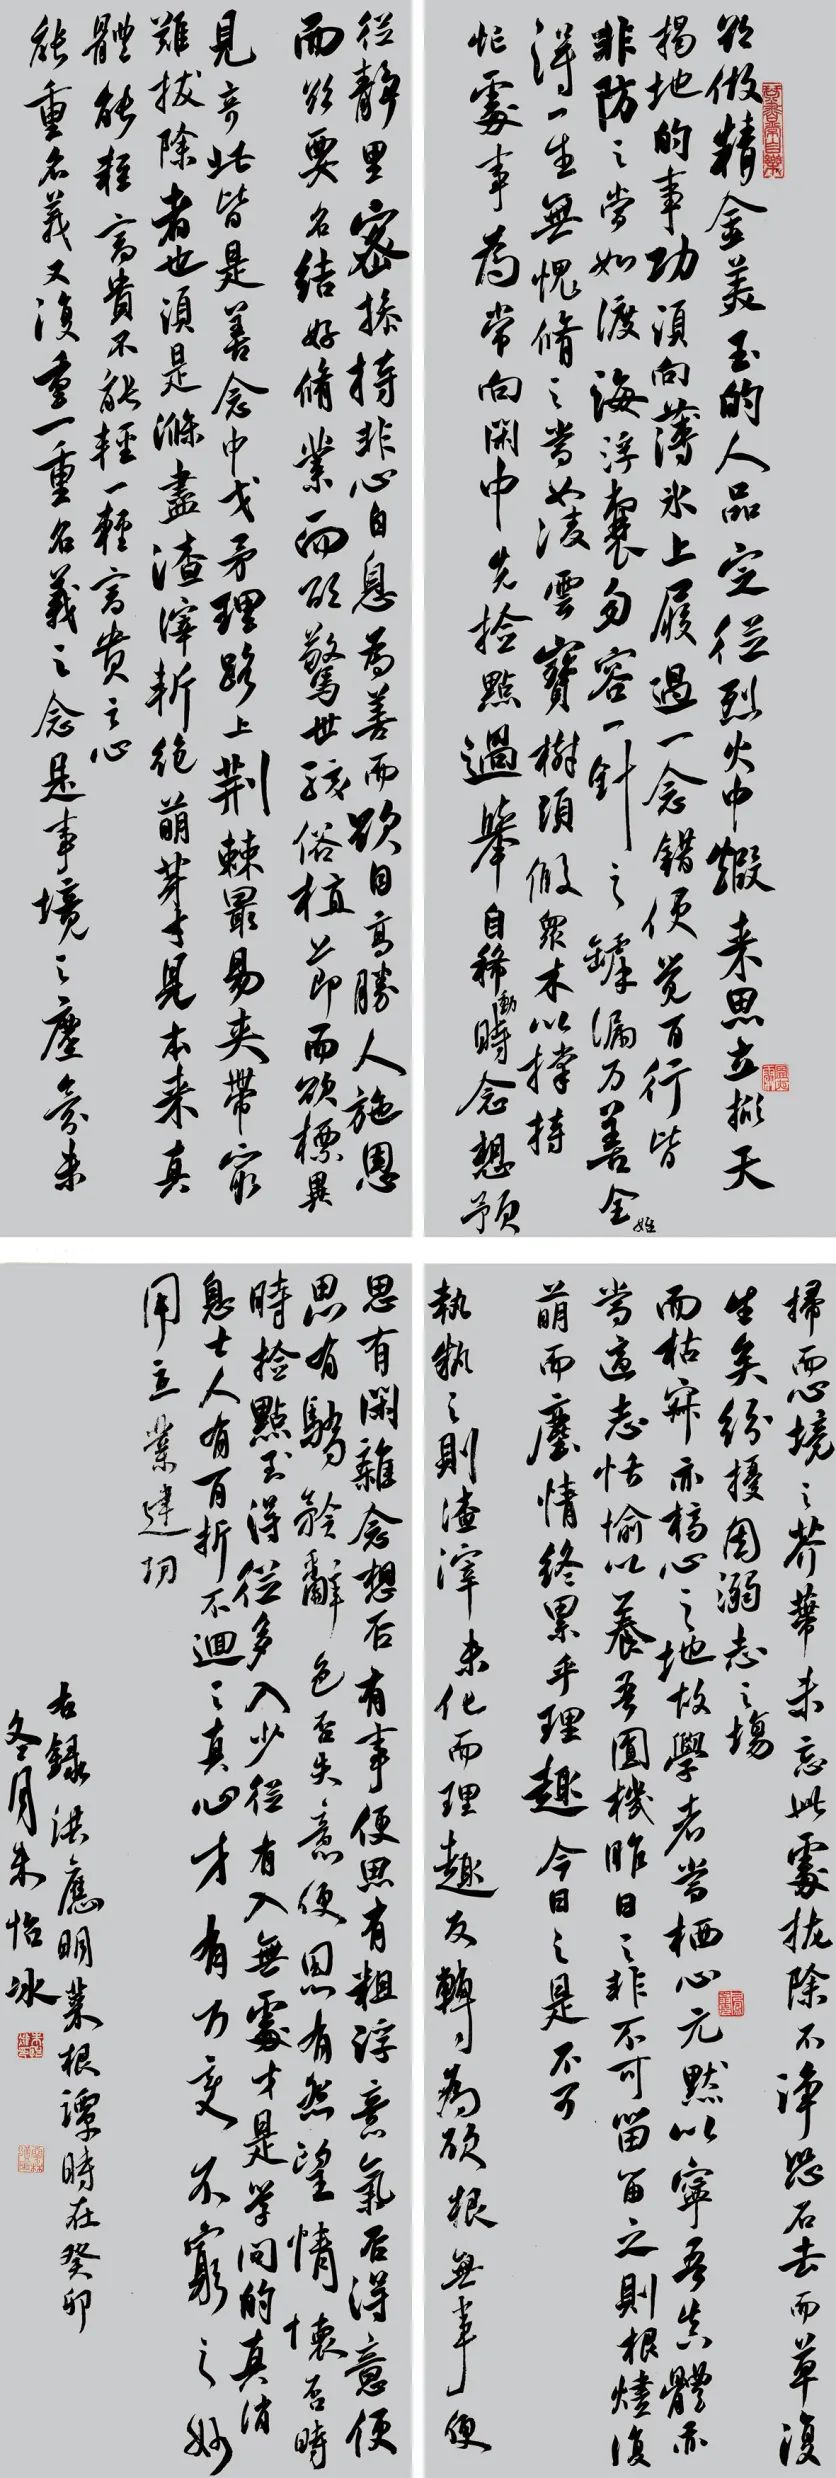 琴書常自樂
欲做精金美玉的人品定從烈火中煅来思立掀天
揭地的事功須向薄冰上履過一念錯便覺百行皆
非防之當如渡海浮囊勿容一針之罅漏万善全始
得一生無愧脩之當如凌雲寶樹須假衆木以撑持
忙處事為常向閑中先撿點過舉自稀動時念想預
從静里密操持非心自息為善而欲自高勝人施恩
而欲要名結好脩業而欲驚世駭俗植節而欲標異
見奇此皆是善念中戈矛理路上荆棘最易夾帶最
難拔除者也須是滌盡渣滓斬絶萌芽才見本来真
體能輕富貴不能輕一輕富貴之心
能重名義又復重一重名義之念是事境之塵氛未
掃而心境之芥蒂未忘此處拔除不净恐石去而草復
生矣紛擾固溺志之塲
而枯寂亦槁心之地故學者當栖心元默以寧吾真體亦
當適志恬愉以養吾圓機昨日之非不可留留之則根燼復
萌而塵情終累乎理趣今日之是不可
執執之則渣滓未化而理趣反轉為欲根無事便
思有閑雜念想否有事便思有粗浮意氣否得意便
思有驕矜辭色否失意便思有怨望情懷否時
時撿點到得從多入少從有入無處才是学问的真消
息士人有百折不迴之真心才有万变不窮之妙
用立業建功
右録洪應明菜根譚時在癸卯
冬月朱怡冰